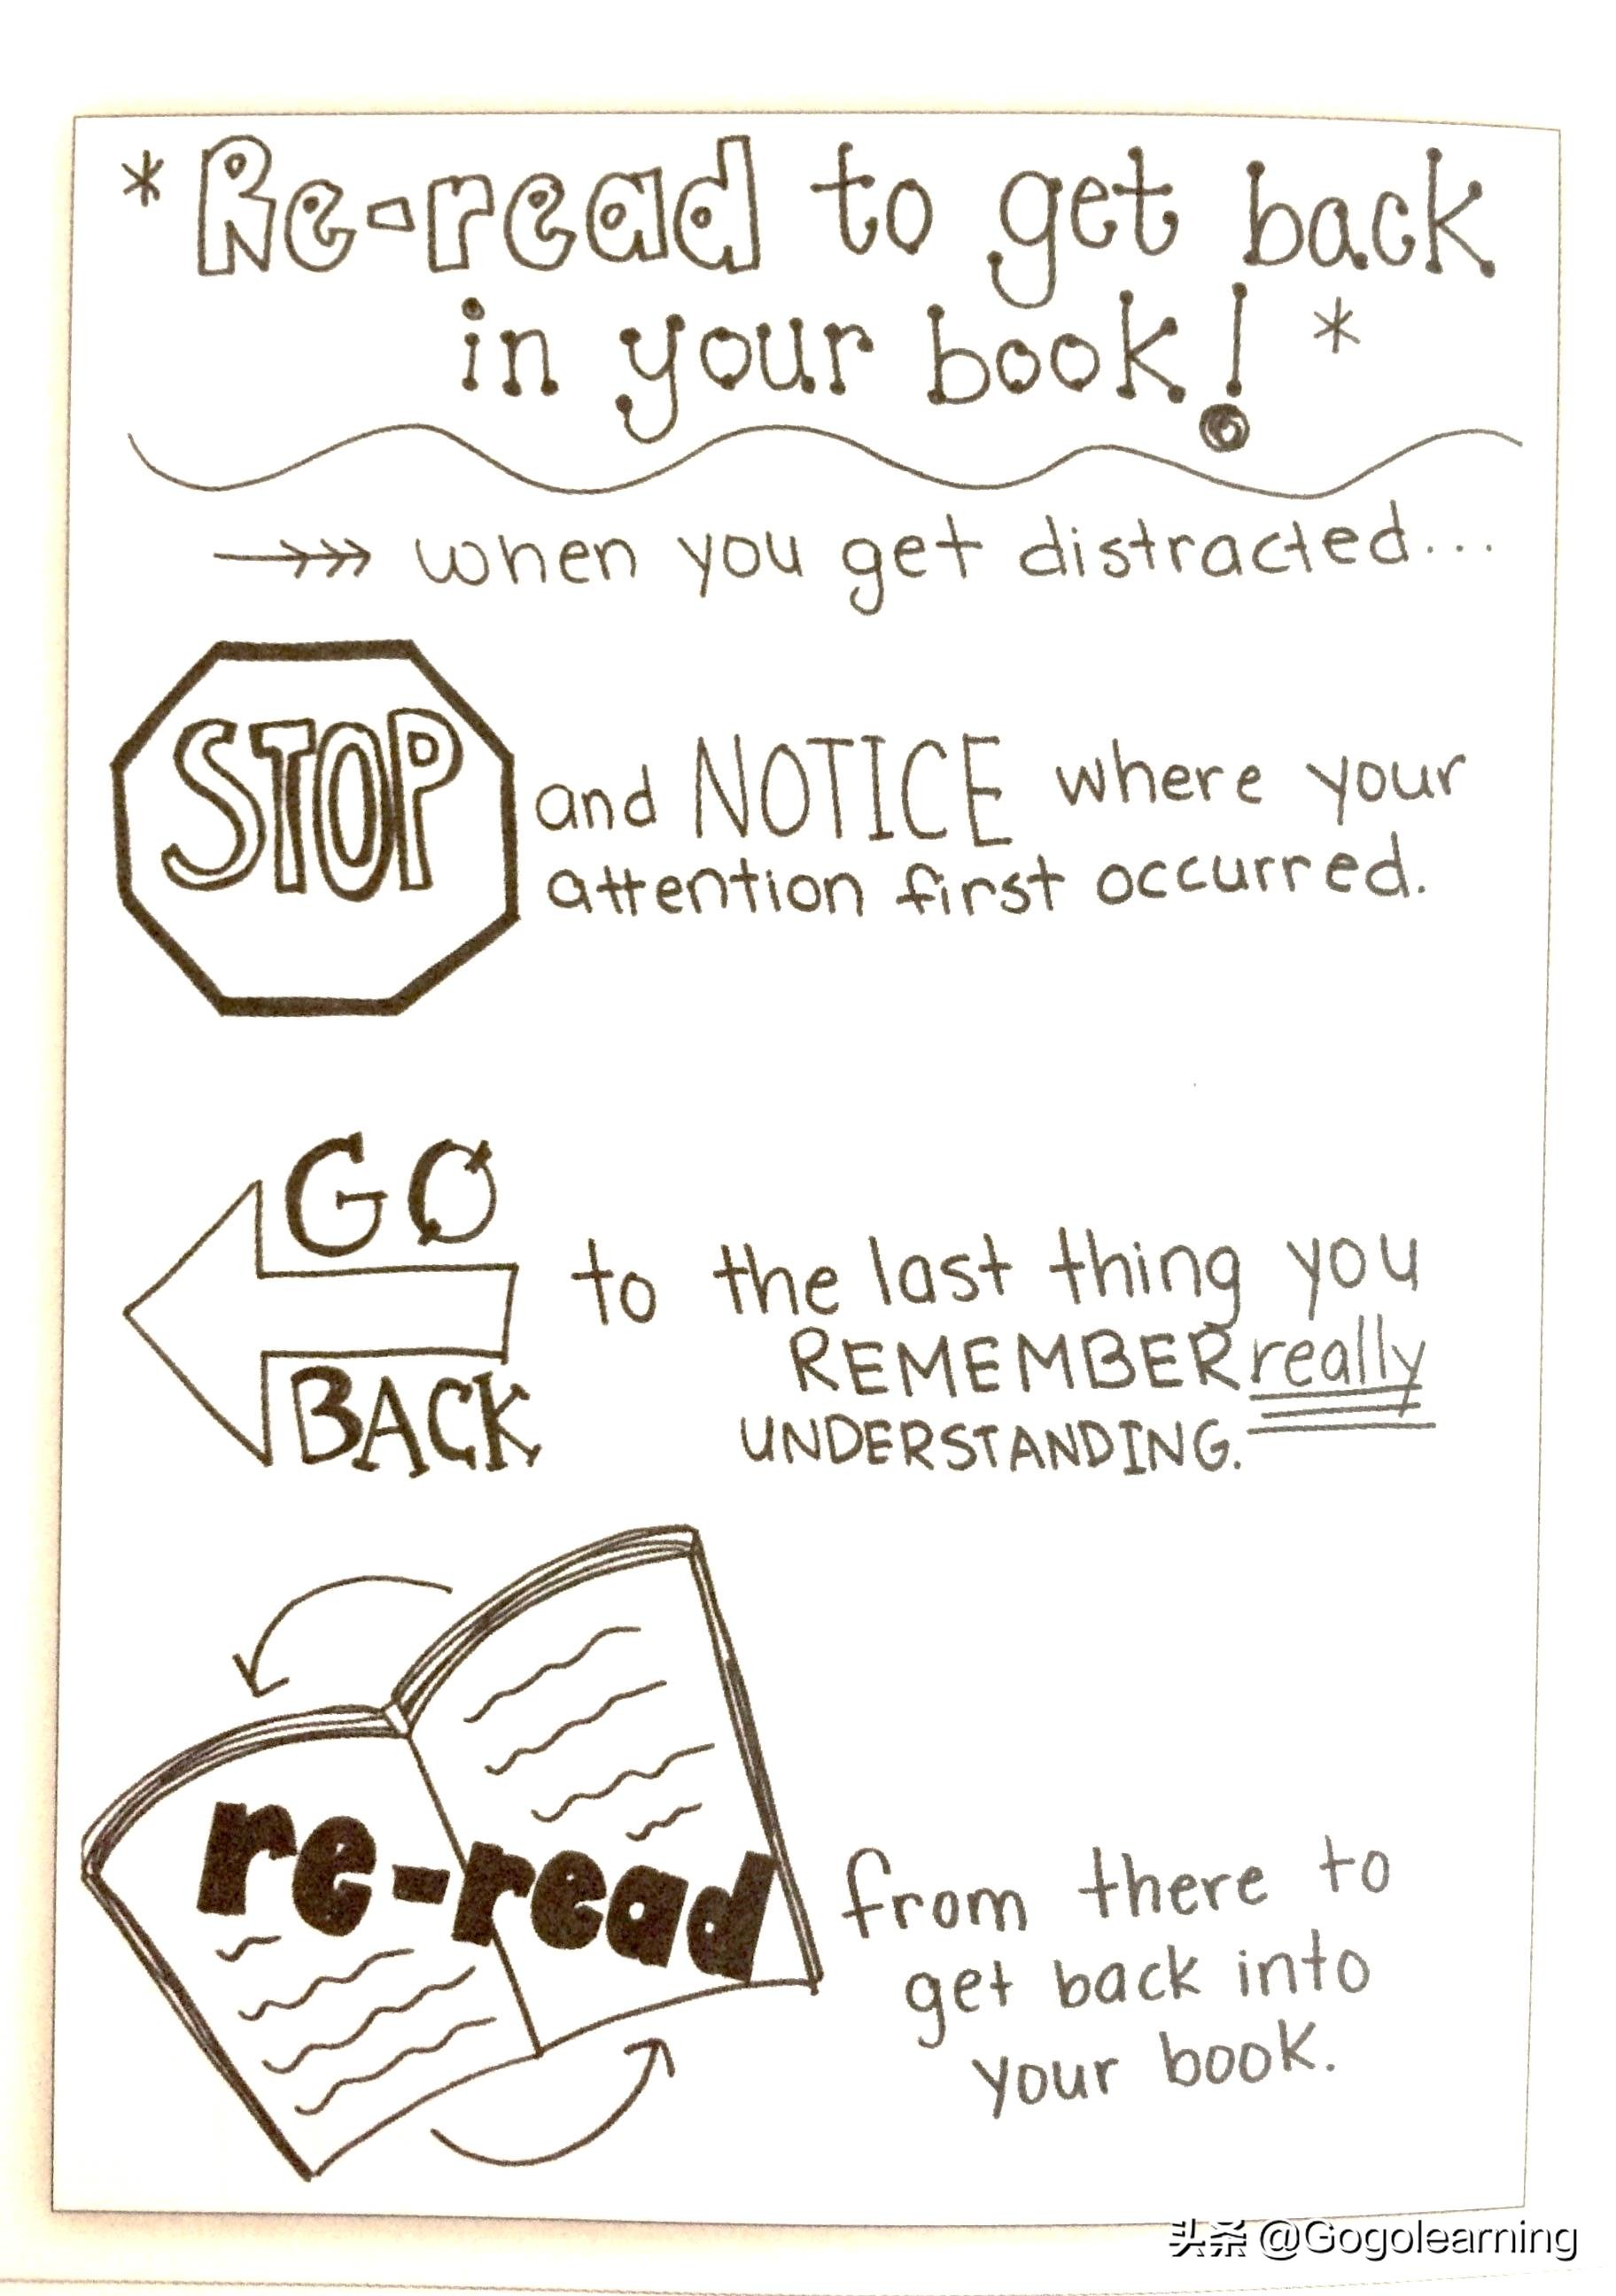 * Re-read to get back
in your book! *
when you get distracted...
STOP and NOTICE where your
attention first occurred.
GO
BACK
to the last thing you
REMEMBER really
UNDERSTANDING.
re-read
from there to
get back into
your book.
头条 @Gogolearning